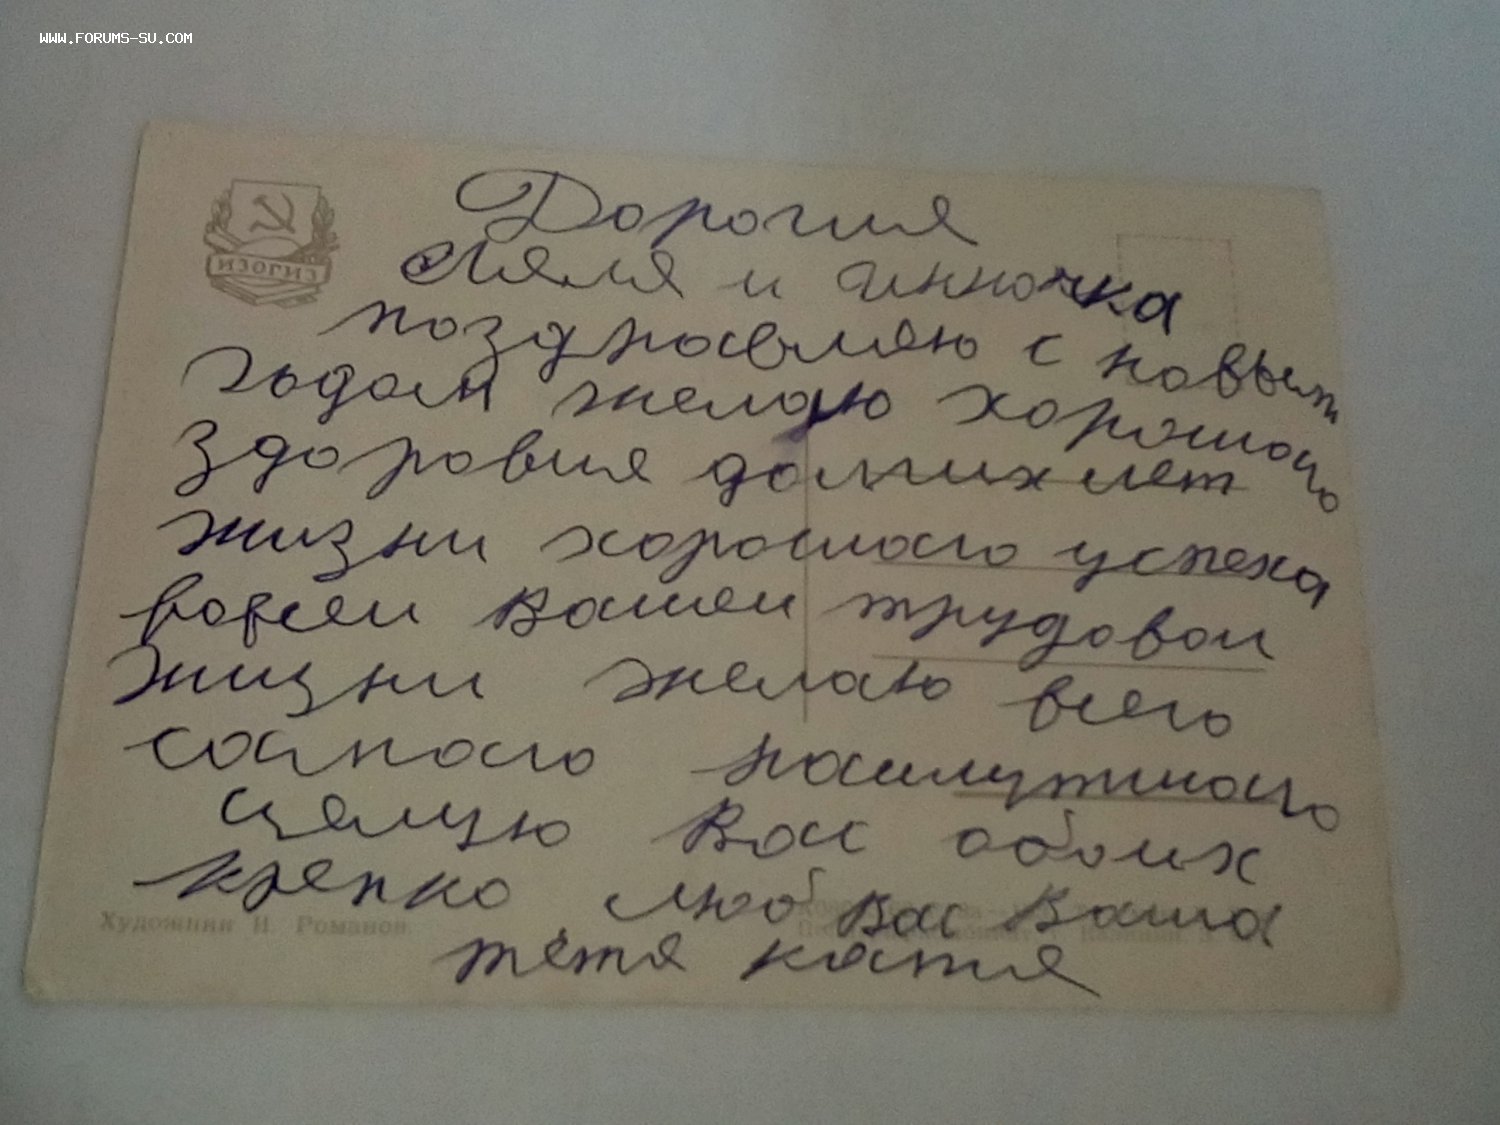 WWW.FORUMS-SU.COM
ИЗОГИЗ
Дорогия
Ляля и инночка
поздравляю с новым
годом желаю хорошого
здоровия долгих лет
жизни хорошого успеха
вовсеи вашеи трудовои
жизни желаю всего
самого наилутшого
целую вас обоих
крепко люб вас Ваша
тётя катя
Художник И. Романов